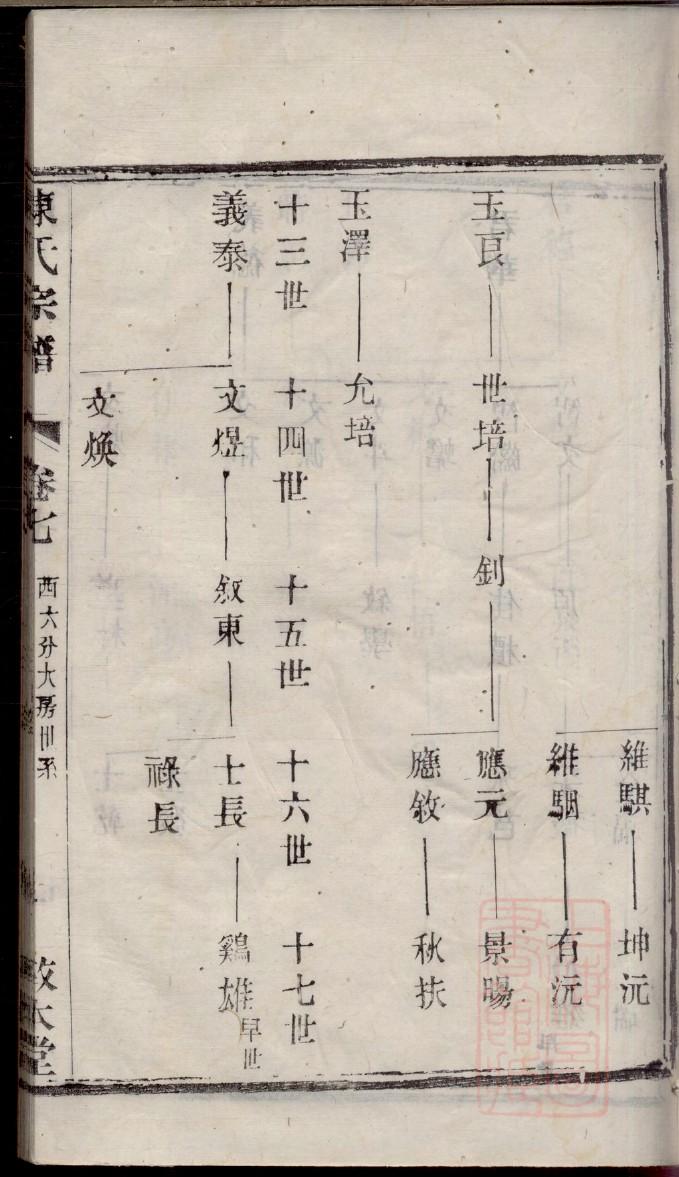 維騏 坤沅
維駰 有沅
玉良 世培 釗 應元 景暘
應敘 秋扶
玉澤 允培
十三世 十四世 十五世 十六世 十七世
義泰 文煜 敘東 士長 鷄雄 早世
祿長
文煥
陳氏宗譜 卷七 西大分大房世系 敬本堂